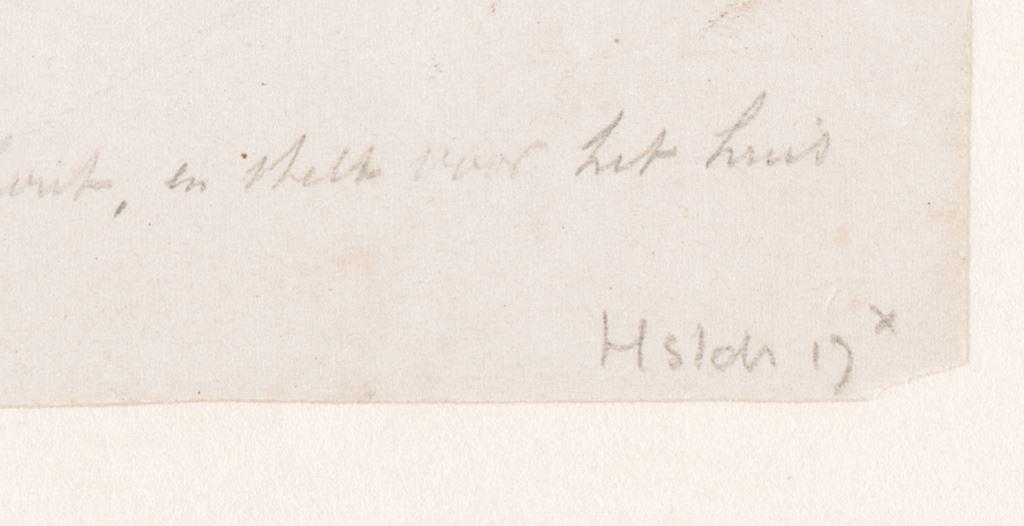 en stelt voor het huis
Hsldr 17 x